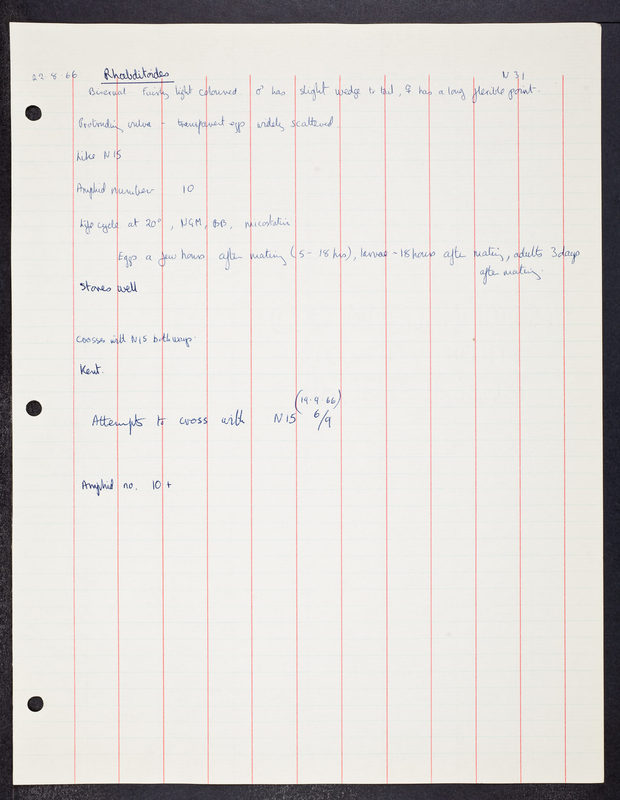 22.8.66 Rhabditoides N31
Bisexual Fairly light coloured. ♂ has slight wedge to tail, ♀ has a long flexible point.
Protruding vulva - transparent eggs widely scattered.
Like N15
Amphid number 10
Life cycle at 20°, NGM, BB, mycostatin
Eggs a few hours after mating (5 - 18 hrs), larvae ~18 hours after mating, adults 3 days
after mating.
Stores well
Crosses with N15 both ways.
Kent.
(19.9.66)
Attempts to cross with N15 6/9
Amphid no. 10 +